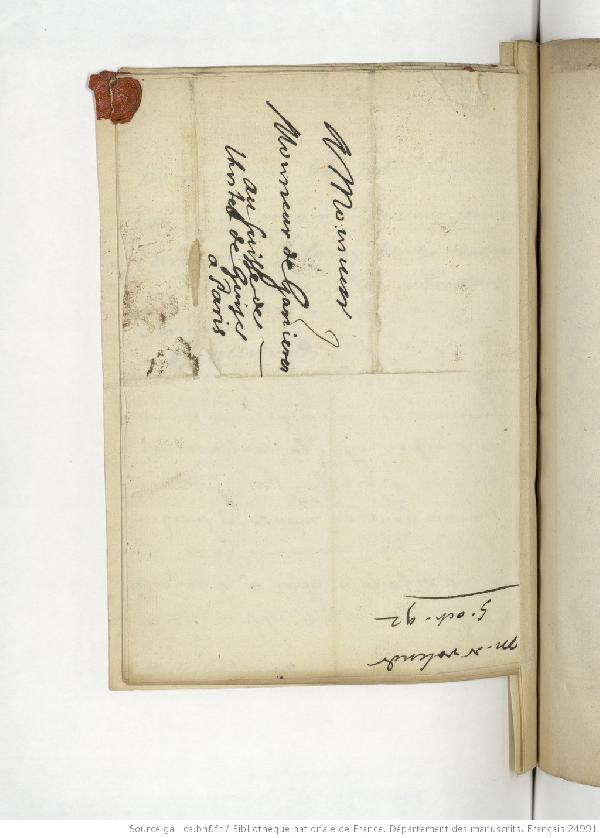 A Monsieur
Monsieur de Ganieres
au faille de
lhostel de Guise
a Paris
5. oct. 92
Source gallica.bnf.fr / Bibliothèque nationale de France. Département des manuscrits. Français 24991